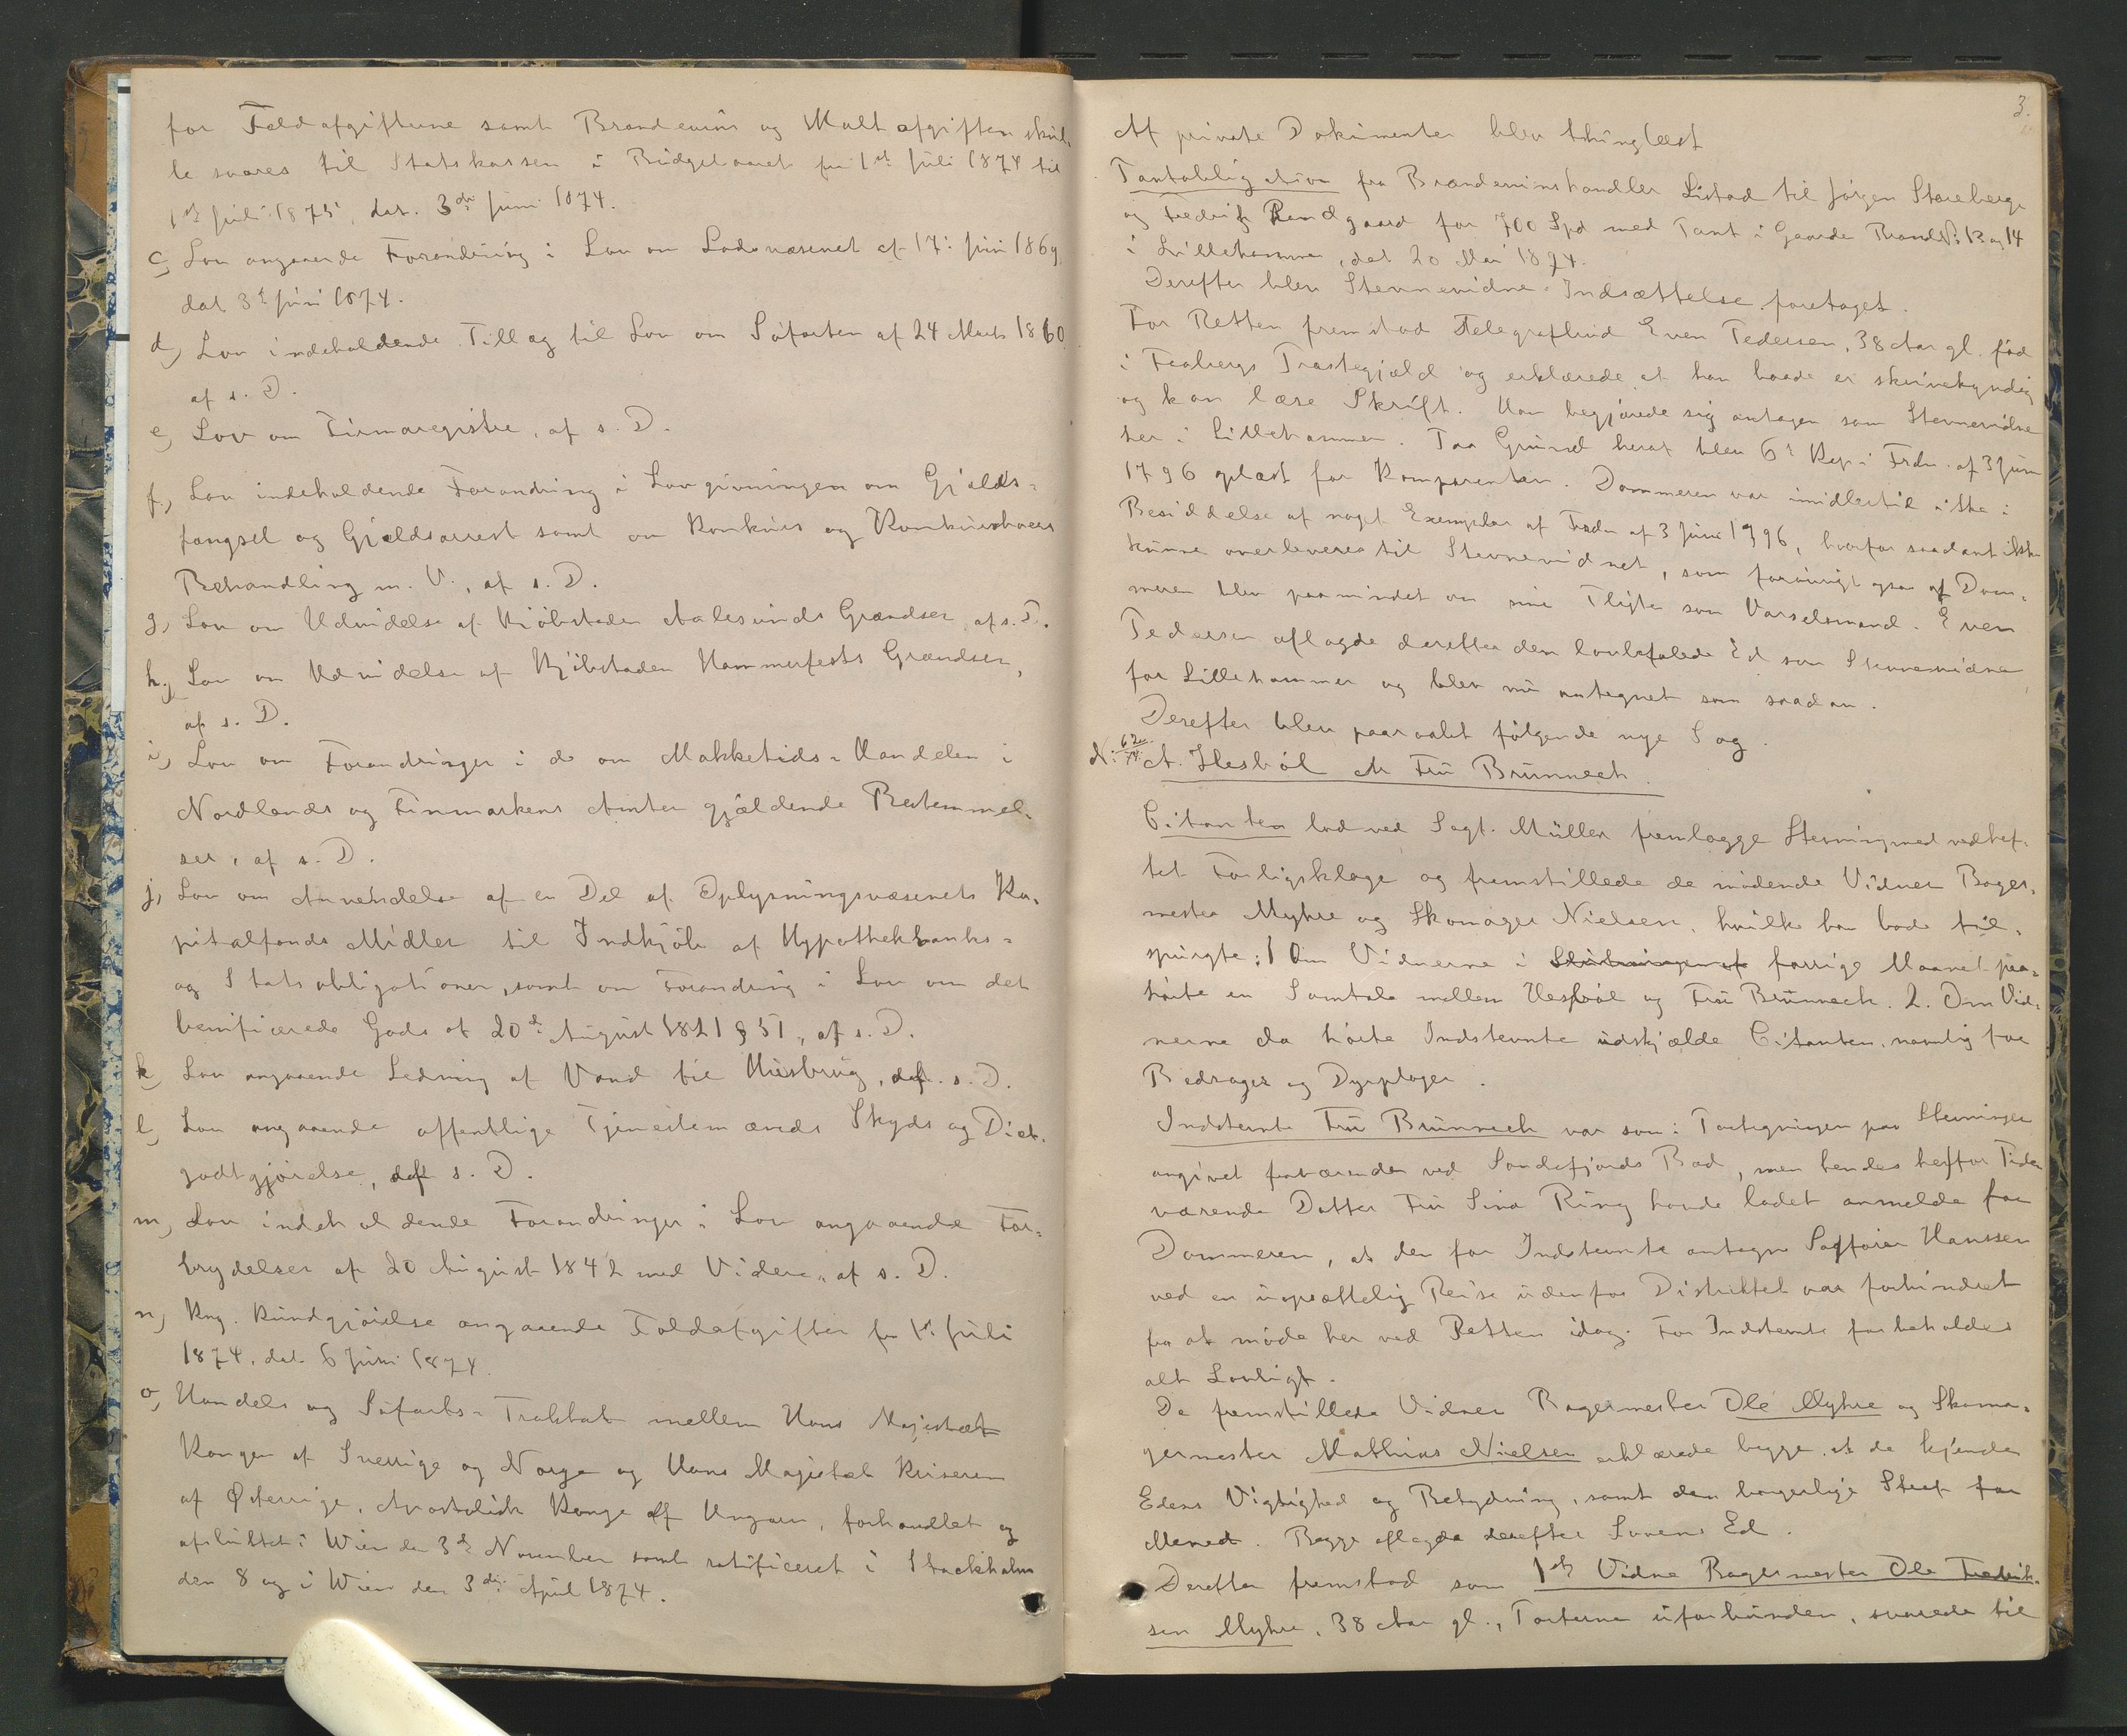 for Toldafgifterne samt Brændeviins og Maltafgiften skul-
le svares til Statskassen i Budgetaaret fra 1st Juli 1874 til
1st Juli 1875, dat. 3die Juni 1874.
c, Lov angaaende Forandring i Lov om Lodsvæsenet af 17: Juni 1869,
dat 3d Juni 1874.
d, Lov indeholdende Tillæg til Lov om Söfarten af 24 Marts 1860
af s. D.
e, Lov om Firmaregistre, af s. D.
f, Lov indeholdende Forandring i Lovgivningen om Gjælds-
fængsel og Gjældsarrest samt om Konkurs og Konkursboers
Behandling m. V., af s. D.
g, Lov om Udvidelse af Kjöbstaden Aalesunds Grændser, af s. D.
h, Lov om Udvidelse af Kjöbstaden Hammerfests Grændser,
af s. D.
i, Lov om Forandringer i de om Makketids-Handelen i
Nordlands og Finmarkens Amter gjældende Bestemmel-
ser, af s. D.
j, Lov om Anvendelse af en Del af Oplysningsvæsenets Ka-
pitalfonds Midler til Indkjöb af Hypothekbanks-
og Statsobligationer, samt om Forandring i Lov om det
benificerede Gods af 20de August 1821 § 51, af s. D.
k, Lov angaaende Ledning af Vand til Husbrug, af s. D.
l, Lov angaaende offentlige Tjenestemænds Skyds og Diæt-
godtgjörelse, af s. D.
m, Lov indeholdende Forandringer i Lov angaaende For-
brydelser af 20 August 1842 med Videre, af s. D.
n, Kng. Kundgjörelse angaaende Toldafgifter fra 1st Juli
1874, dat. 6 Juni 1874.
o, Handels og Söfarts-Traktat mellem Hans Majestæt
Kongen af Sverrige og Norge og Hans Majestæt Keiseren
af Österrige, Apostolisk Konge af Ungarn, forhandlet og
afsluttet i Wien den 3die November samt ratificeret i Stockholm
den 8 og i Wien den 3die April 1874.
3.
Af private Dokumenter blev thinglæst
Pantobligation fra Brændevinshandler Listad til Jörgen Storeberge
og Fredrik Rendgaard for 700 Spd med Pant i Gaarde Brand No 13 og 14
i Lillehammer, dat 20 Mai 1874.
Derefter blev Stevnevidne-Indsættelse foretaget.
For Retten fremstod Telegrafbud Even Pedersen, 38 Aar gl. föd
i Faabergs Præstegjæld og erklærede at han baade er skrivekyndig
og kan læse Skrift. Han begjærede sig antagen som Stevnevidne
her i Lillehammer. Paa Grund heraf blev 6te Kap i Frdn. af 3 Juni
1796 oplæst for Komparenten. Dommeren var imidlertid ikke i
Besiddelse af noget Exemplar af Frdn af 3 Juni 1796, hvorfor saadant ikke
kunne overleveres til Stevnevidnet, som foröivrigt ogsaa af Dom-
meren blev paamindet om sine Pligter som Varselsmand. Even
Pedersen aflagde derefter den lovbefalede Ed som Stevnevidne
for Lillehammer og blev nu antegnet som saadan.
Derefter blev paaraabt fölgende nye Sag.
N: 62/74. A. Hesböl Ctr Fru Brunnech.
Citanten lod ved Sagf. Müller fremlægge Stevning med vedhef-
tet Forligsklage og fremstillede de mödende Vidner Bager-
mester Myhre og Skomager Nielsen, hvilke han bad til-
spurgte: 1 Om Vidnerne i Slutningen af forrige Maaned paa-
hörte en Samtale mellem Hesböl og Fru Brunnech. 2. Om Vid-
nerne da hörte Indstevnte udskjælde Citanten, navnlig for
Bedrager og Dyrplager.
Indstevnte Fru Brunnech var som i Paategningen paa Stevningen
angivet fraværende ved Sandefjords Bad, men hendes herfor Tiden
værende Datter Fru Sina Ring havde ladet anmelde for
Dommeren, at den for Indstevnte antagne Sagförer Hanssen
ved en uopsættelig Reise udenfor Distriktet var forhindret
fra at möde her ved Retten idag. For Indstevnte forbeholdes
alt Lovligt.
De fremstillede Vidner Bagermester Ole Myhre og Skoma-
germester Mathias Nielsen erklærede begge, at de kjende
Edens Vigtighed og Betydning, samt den borgerlige Straf for
Mened. Begge aflagde derefter Svorens Ed.
Derefter fremstod som 1ste Vidne Bagermester Ole Fredrik-
sen Myhre, 38 Aar gl., Parterne uforbunden, svarede til